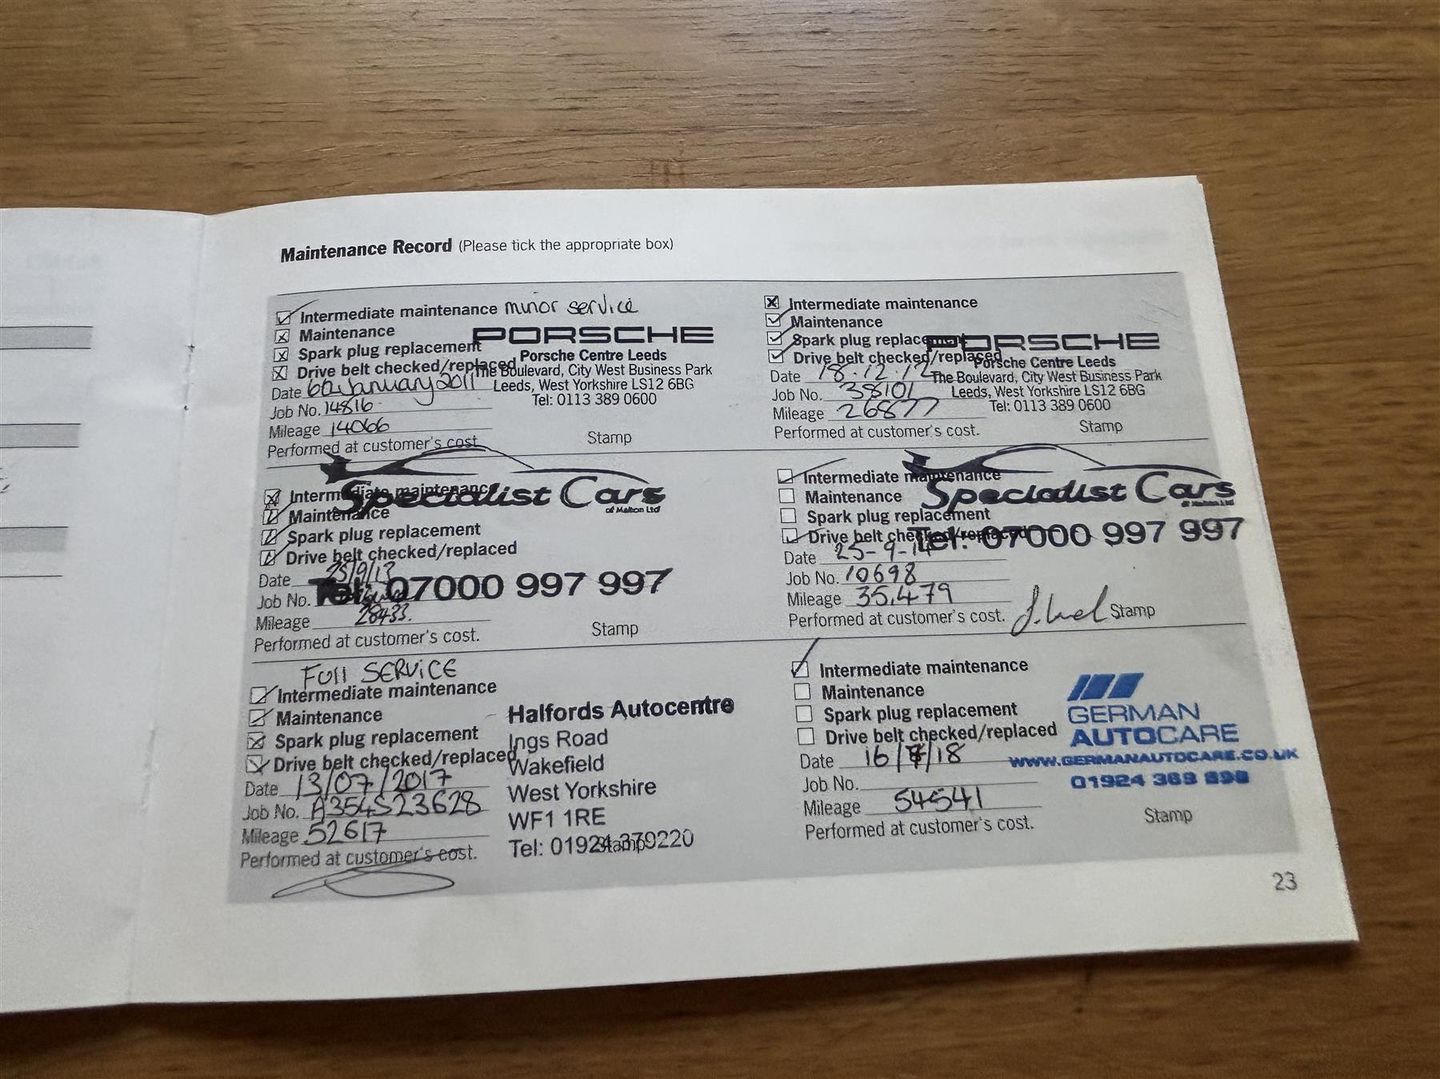 Maintenance Record (Please tick the appropriate box)
Intermediate maintenance minor service
Maintenance
Spark plug replacement
Drive belt checked/replaced
Date 6th January 2011
Job No. 14816
Mileage 14066
Performed at customer's cost
Stamp
PORSCHE
Porsche Centre Leeds
The Boulevard, City West Business Park
Leeds, West Yorkshire LS12 6BG
Tel: 0113 389 0600
Intermediate maintenance
Maintenance
Spark plug replacement
Drive belt checked/replaced
Date 18.12.12
Job No. 38101
Mileage 26877
Performed at customer's cost.
Stamp
PORSCHE
Porsche Centre Leeds
The Boulevard, City West Business Park
Leeds, West Yorkshire LS12 6BG
Tel: 0113 389 0600
Intermediate maintenance
Maintenance
Spark plug replacement
Drive belt checked/replaced
Date 25/9/13
Job No.
Mileage 28433.
Performed at customer's cost.
Stamp
Specialist Cars
of Malton Ltd
Tel: 07000 997 997
Intermediate maintenance
Maintenance
Spark plug replacement
Drive belt checked/replaced
Date 25-9-14
Job No. 10698
Mileage 35,479
Performed at customer's cost.
Stamp
Specialist Cars
of Malton Ltd
Tel: 07000 997 997
FUll SERViCE
Intermediate maintenance
Maintenance
Spark plug replacement
Drive belt checked/replaced
Date 13/07/2017
Job No. A354S23628
Mileage 52617
Performed at customer's cost.
Halfords Autocentre
Ings Road
Wakefield
West Yorkshire
WF1 1RE
Tel: 01924 379220
Stamp
Intermediate maintenance
Maintenance
Spark plug replacement
Drive belt checked/replaced
Date 16/7/18
Job No.
Mileage 54541
Performed at customer's cost.
Stamp
GERMAN
AUTOCARE
WWW.GERMANAUTOCARE.CO.UK
01924 369 898
23